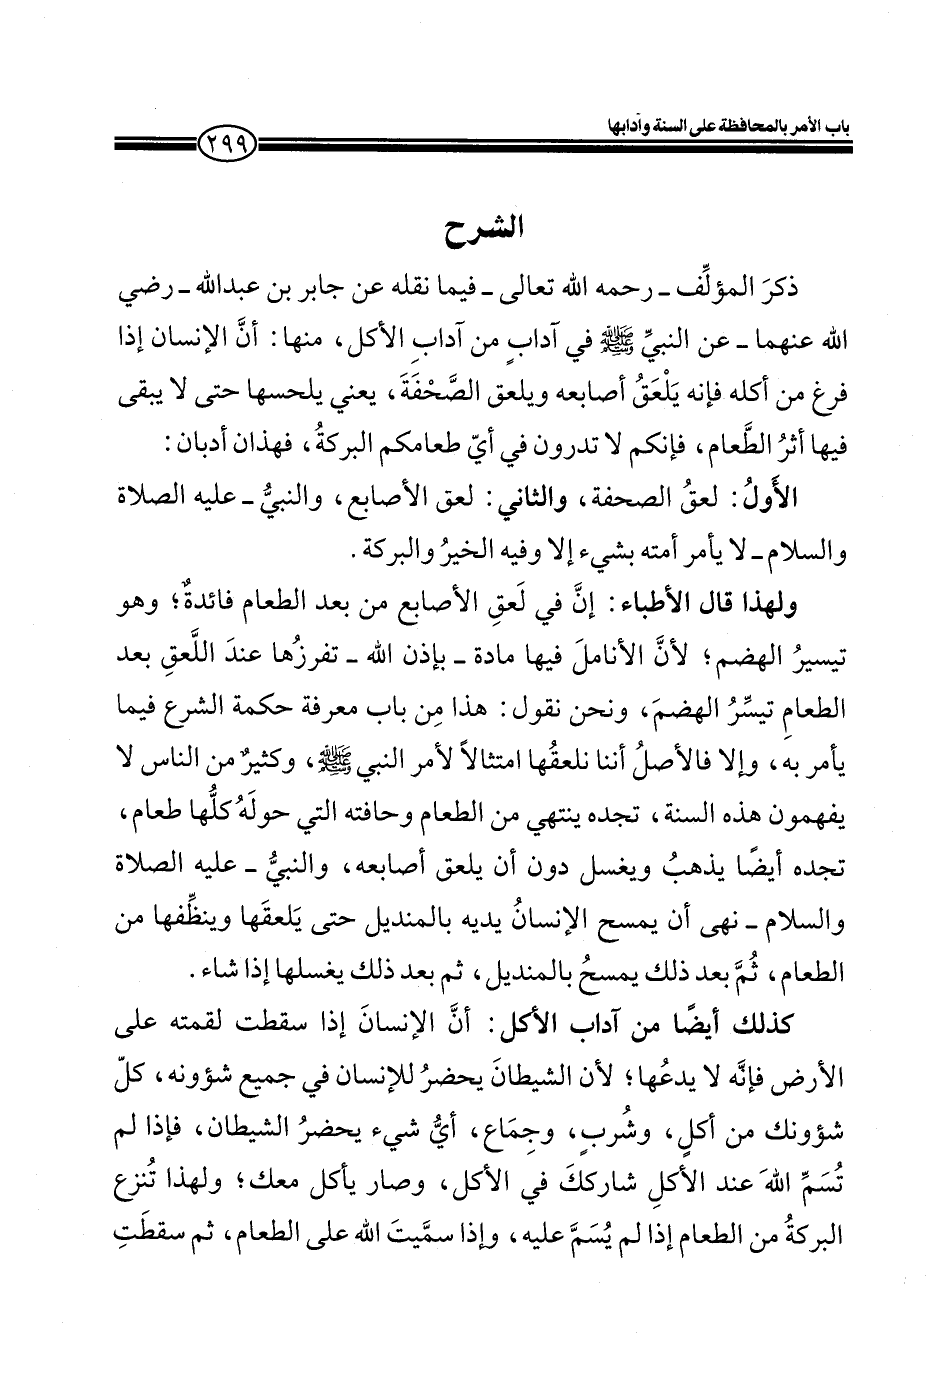 باب الأمر بالمحافظة على السنة وآدابها
٢٩٩
الشرح
ذكرَ المؤلِّف ـ رحمه الله تعالى ـ فيما نقله عن جابر بن عبدالله ـ رضي
الله عنهما ـ عن النبيِّ ﷺ في آدابٍ من آدابِ الأكل، منها: أنَّ الإنسان إذا
فرغ من أكله فإنه يَلْعَقُ أصابعه ويلعق الصَّحْفَةَ، يعني يلحسها حتى لا يبقى
فيها أثرُ الطَّعام، فإنكم لا تدرون في أيّ طعامكم البركةُ، فهذان أدبان:
الأَولُ: لعقُ الصحفة، والثاني: لعق الأصابع، والنبيُّ ـ عليه الصلاة
والسلام ـ لا يأمر أمته بشيء إلا وفيه الخيرُ والبركة.
ولهذا قال الأطباء: إنَّ في لَعقِ الأصابع من بعد الطعام فائدةٌ؛ وهو
تيسيرُ الهضم؛ لأنَّ الأناملَ فيها مادة ـ بإذن الله ـ تفرزُها عندَ اللَّعقِ بعد
الطعامِ تيسِّرُ الهضمَ، ونحن نقول: هذا مِن باب معرفة حكمة الشرع فيما
يأمر به، وإلا فالأصلُ أننا نلعقُها امتثالاً لأمر النبي ﷺ، وكثيرٌ من الناس لا
يفهمون هذه السنة، تجده ينتهي من الطعام وحافته التي حولَهُ كلُّها طعام،
تجده أيضًا يذهبُ ويغسل دون أن يلعق أصابعه، والنبيُّ ـ عليه الصلاة
والسلام ـ نهى أن يمسح الإنسانُ يديه بالمنديل حتى يَلعقَها وينظِّفها من
الطعام، ثُمَّ بعد ذلك يمسحُ بالمنديل، ثم بعد ذلك يغسلها إذا شاء.
كذلك أيضًا من آداب الأكل: أنَّ الإنسانَ إذا سقطت لقمته على
الأرض فإنَّه لا يدعُها؛ لأن الشيطانَ يحضرُ للإنسان في جميع شؤونه، كلّ
شؤونك من أكلٍ، وشُربٍ، وجِمَاع، أيُّ شيء يحضرُ الشيطان، فإذا لم
تُسَمِّ اللهَ عند الأكلِ شارككَ في الأكل، وصار يأكل معك؛ ولهذا تُنزع
البركةُ من الطعام إذا لم يُسَمَّ عليه، وإذا سمَّيتَ الله على الطعام، ثم سقطَتِ